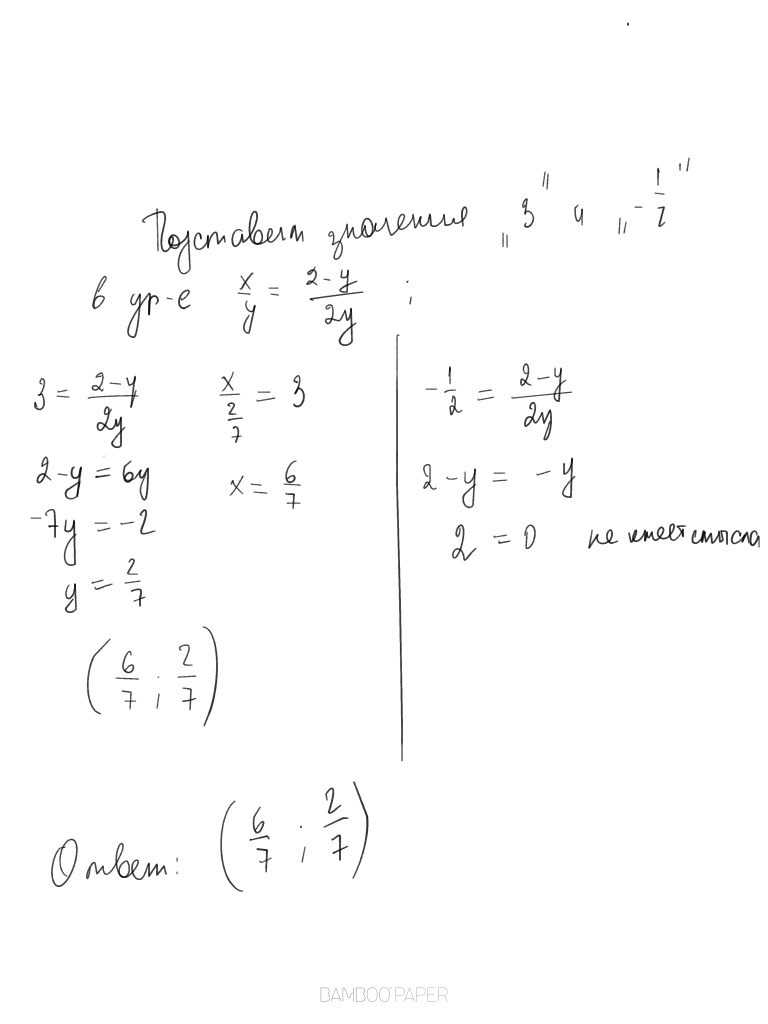 Подставим значения „3" и „-1/2"
в ур-е x/y = (2-y)/(2y) ;
3 = (2-y)/(2y)
2-y = 6y
-7y = -2
y = 2/7
(6/7 ; 2/7)
x/(2/7) = 3
x = 6/7
-1/2 = (2-y)/(2y)
2-y = -y
2 = 0 не имеет смысла
Ответ: (6/7 ; 2/7)
BAMBOO PAPER